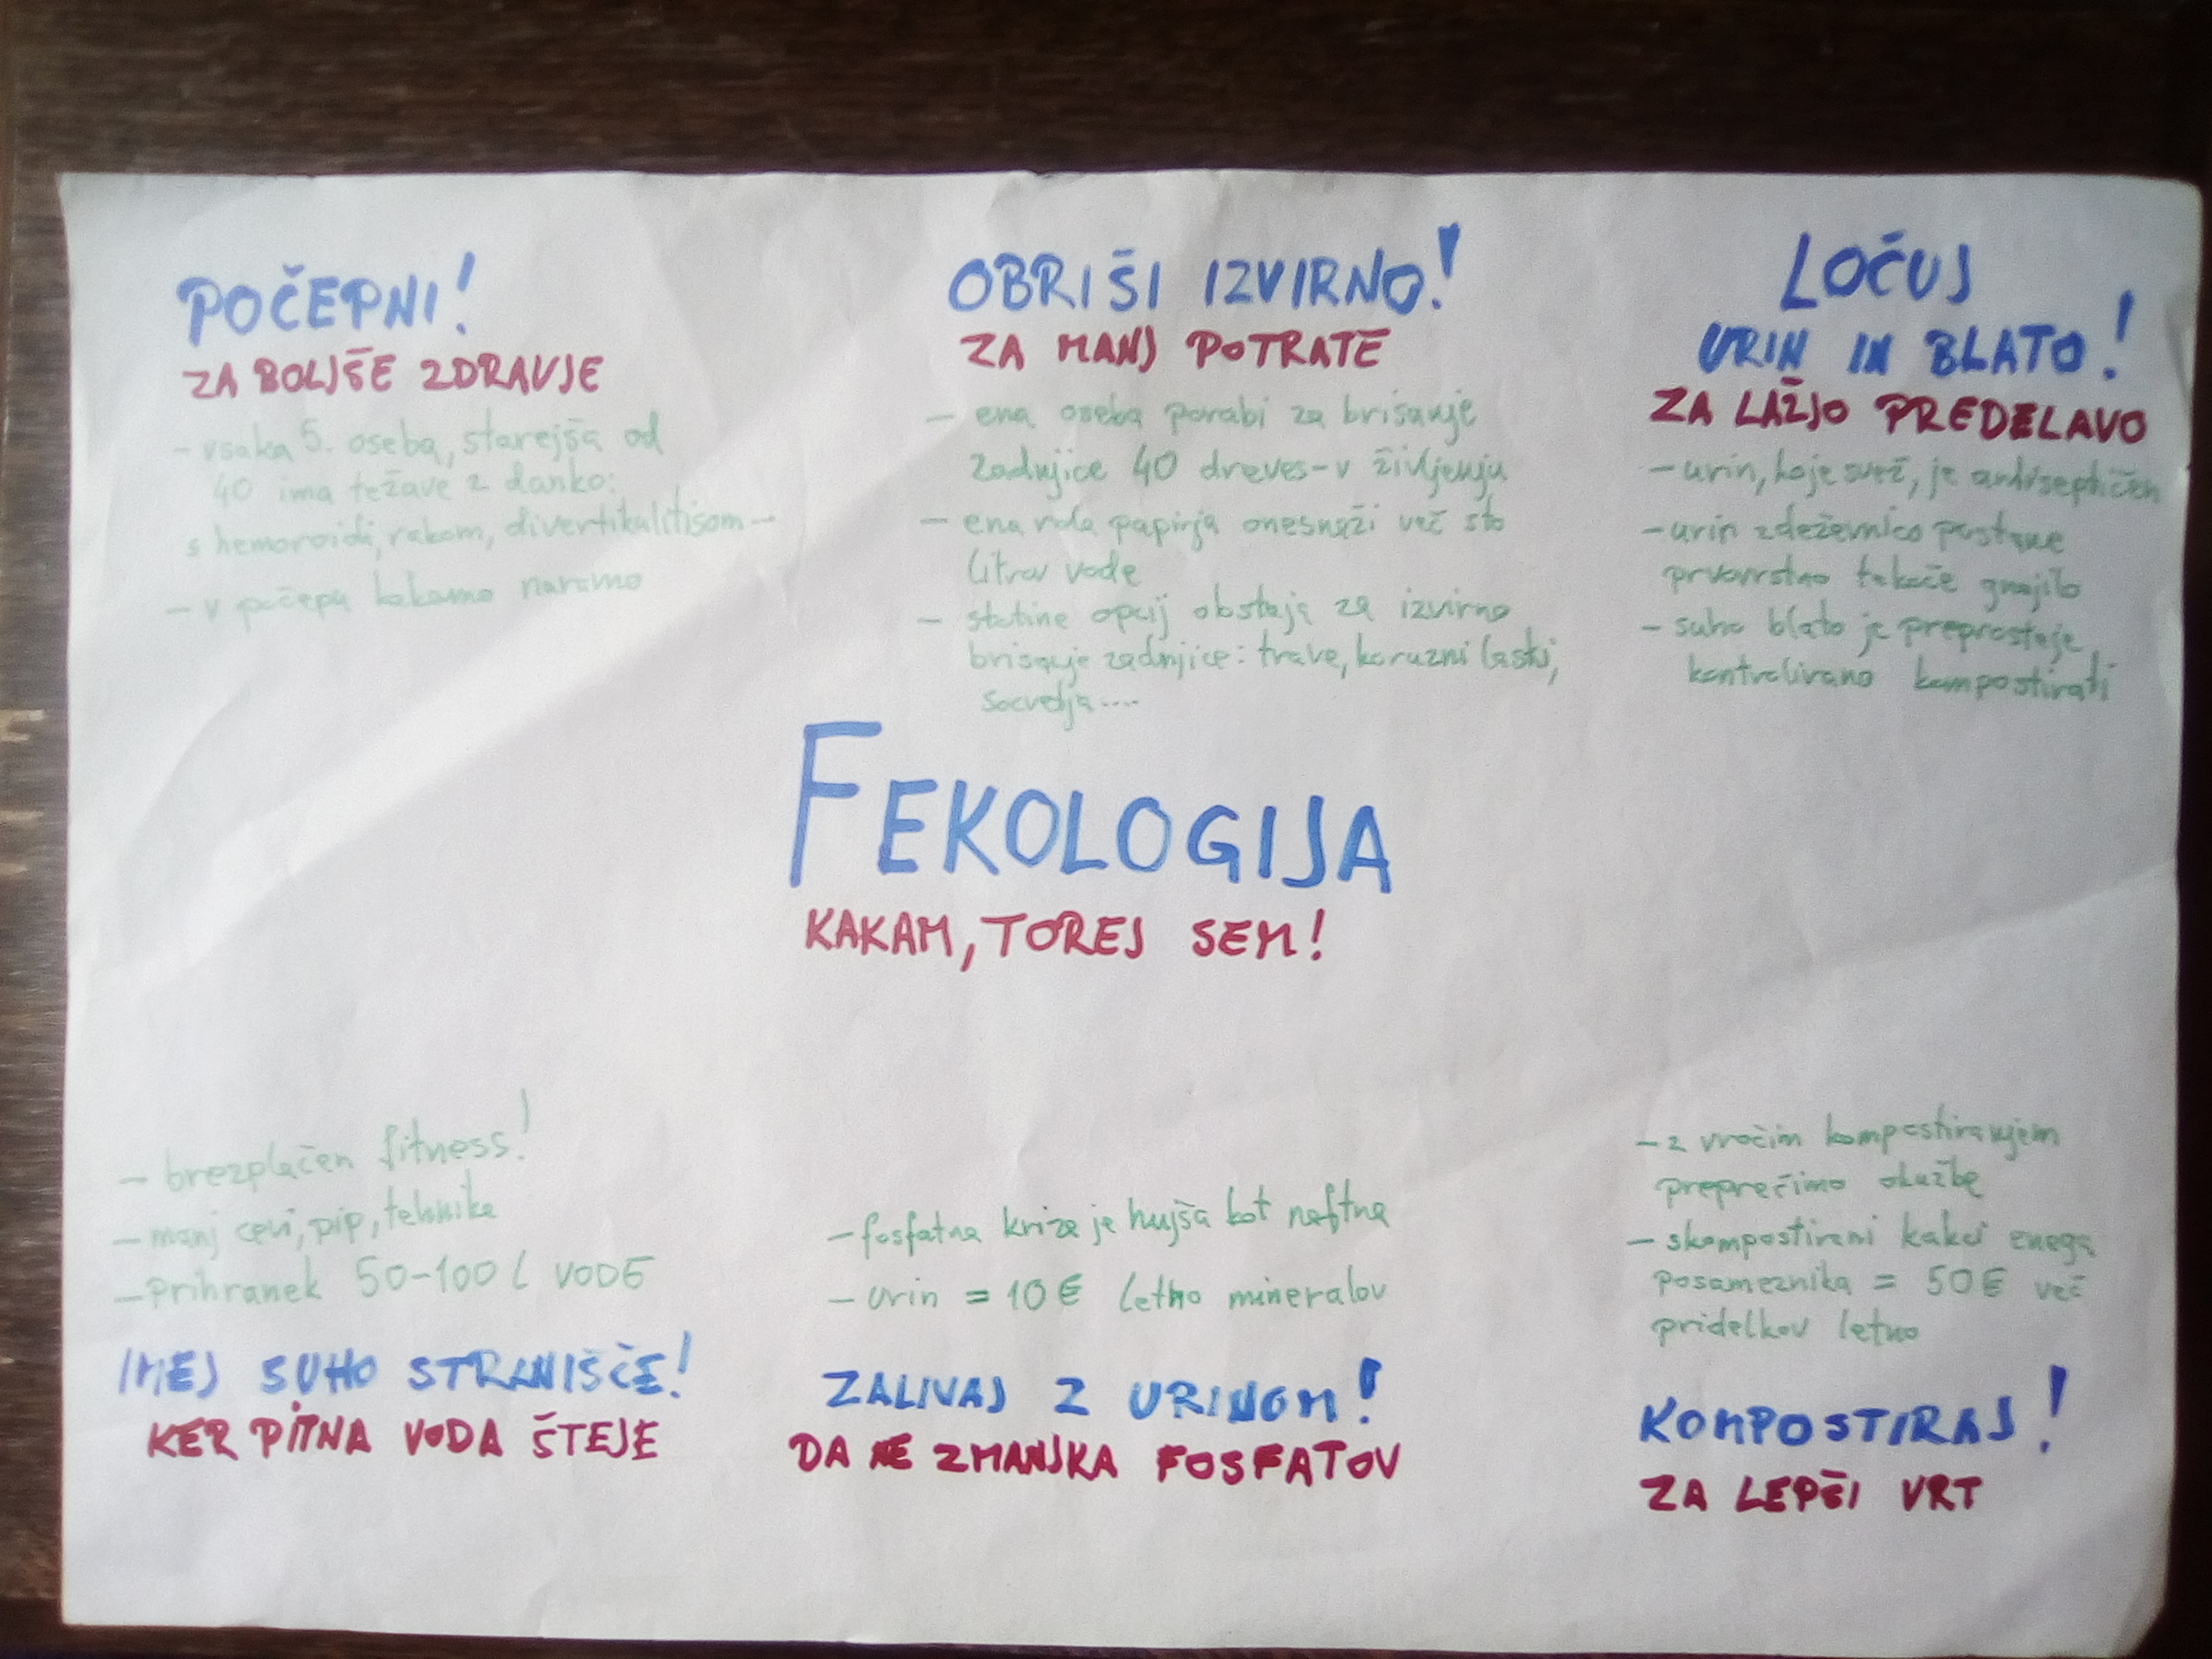 POČEPNI!
ZA BOLJŠE ZDRAVJE
- vsaka 5. oseba, starejša od
40 ima težave z danko:
s hemoroidi, rakom, divertikulitisom--
- v počepu kakamo naravno
OBRIŠI IZVIRNO!
ZA MANJ POTRATE
- ena oseba porabi za brisanje
zadnjice 40 dreves-v življenju
- ena rola papirja onesnaži več sto
litrov vode
- stotine opcij obstaja za izvirno
brisanje zadnjice: trave, koruzni laski,
socvetja....
LOČUJ
URIN IN BLATO!
ZA LAŽJO PREDELAVO
- urin, ko je svež, je antiseptičen
- urin z deževnico postane
prvovrstno tekoče gnojilo
- suho blato je preprosteje
kontrolirano kompostirati
FEKOLOGIJA
KAKAM, TOREJ SEM!
- brezplačen fitness!
- manj cevi, pip, tehnike
- prihranek 50-100 l VODE
IMEJ SUHO STRANIŠČE!
KER PITNA VODA ŠTEJE
- fosfatna kriza je hujša kot naftna
- urin = 10 € letno mineralov
ZALIVAJ Z URINOM!
DA NE ZMANJKA FOSFATOV
- z vročim kompostiranjem
preprečimo okužbe
- skompostirani kakci enega
posameznika = 50 € več
pridelkov letno
KOMPOSTIRAJ!
ZA LEPŠI VRT